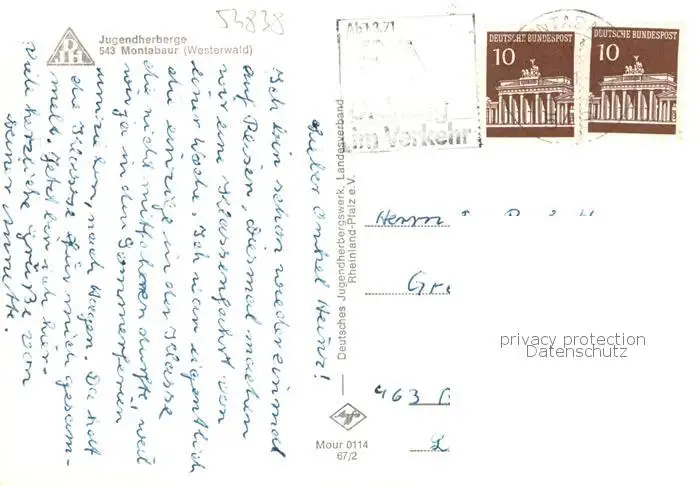 54838
Jugendherberge
543 Montabaur (Westerwald)
Ab 1.3.71
im Verkehr
DEUTSCHE BUNDESPOST
10
DEUTSCHE BUNDESPOST
10
Lieber Onkel Heinz!
Ich bin schon wieder einmal
auf Reisen, diesmal machen
wir eine Klassenfahrt von
einer Woche. Ich war eigentlich
die einzige in der Klasse
die nicht mitfahren durfte, weil
wir ja in den Sommerferien
umziehen, nach Hagen. Da hat
die Klasse für mich gesam-
melt. Jetzt bin ich hier.
Viele herzliche Grüße von
Deiner Annette.
Deutsches Jugendherbergswerk, Landesverband
Rheinland-Pfalz e.V.
Mour 0114
67/2
Herrn
463
privacy protection
Datenschutz